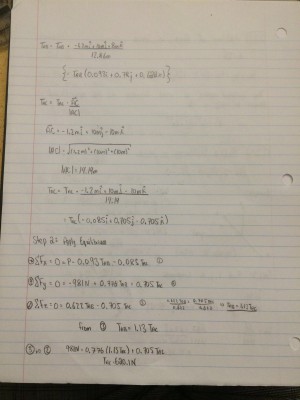 TAB = TAB · -1.2m î + 10m ĵ + 8m k̂
12.86m
{ TAB (0.093i + 0.776j + 0.622k) }
TAC = TAC · AC
|AC|
AC = -1.2m î + 10m ĵ - 10m k̂
|AC| = √(1.2m)² + (10m)² + (10m)²
|AC| = 14.19m
TAC = TAC · -1.2 î + 10m ĵ - 10m k̂
14.19
= TAC (-0.085 î + 0.705 ĵ - 0.705 k̂)
Step 2: Apply Equilibrium
ΣFx = 0 = P - 0.093 TAB - 0.085 TAC ①
ΣFy = 0 = -981N + 0.776 TAB + 0.705 TAC ②
ΣFz = 0 = 0.622 TAB - 0.705 TAC ③
0.622 TAB = 0.705 TAC → TAB = 1.13 TAC
from ③ TAB = 1.13 TAC
981N = 0.776 (1.13 TAC) + 0.705 TAC